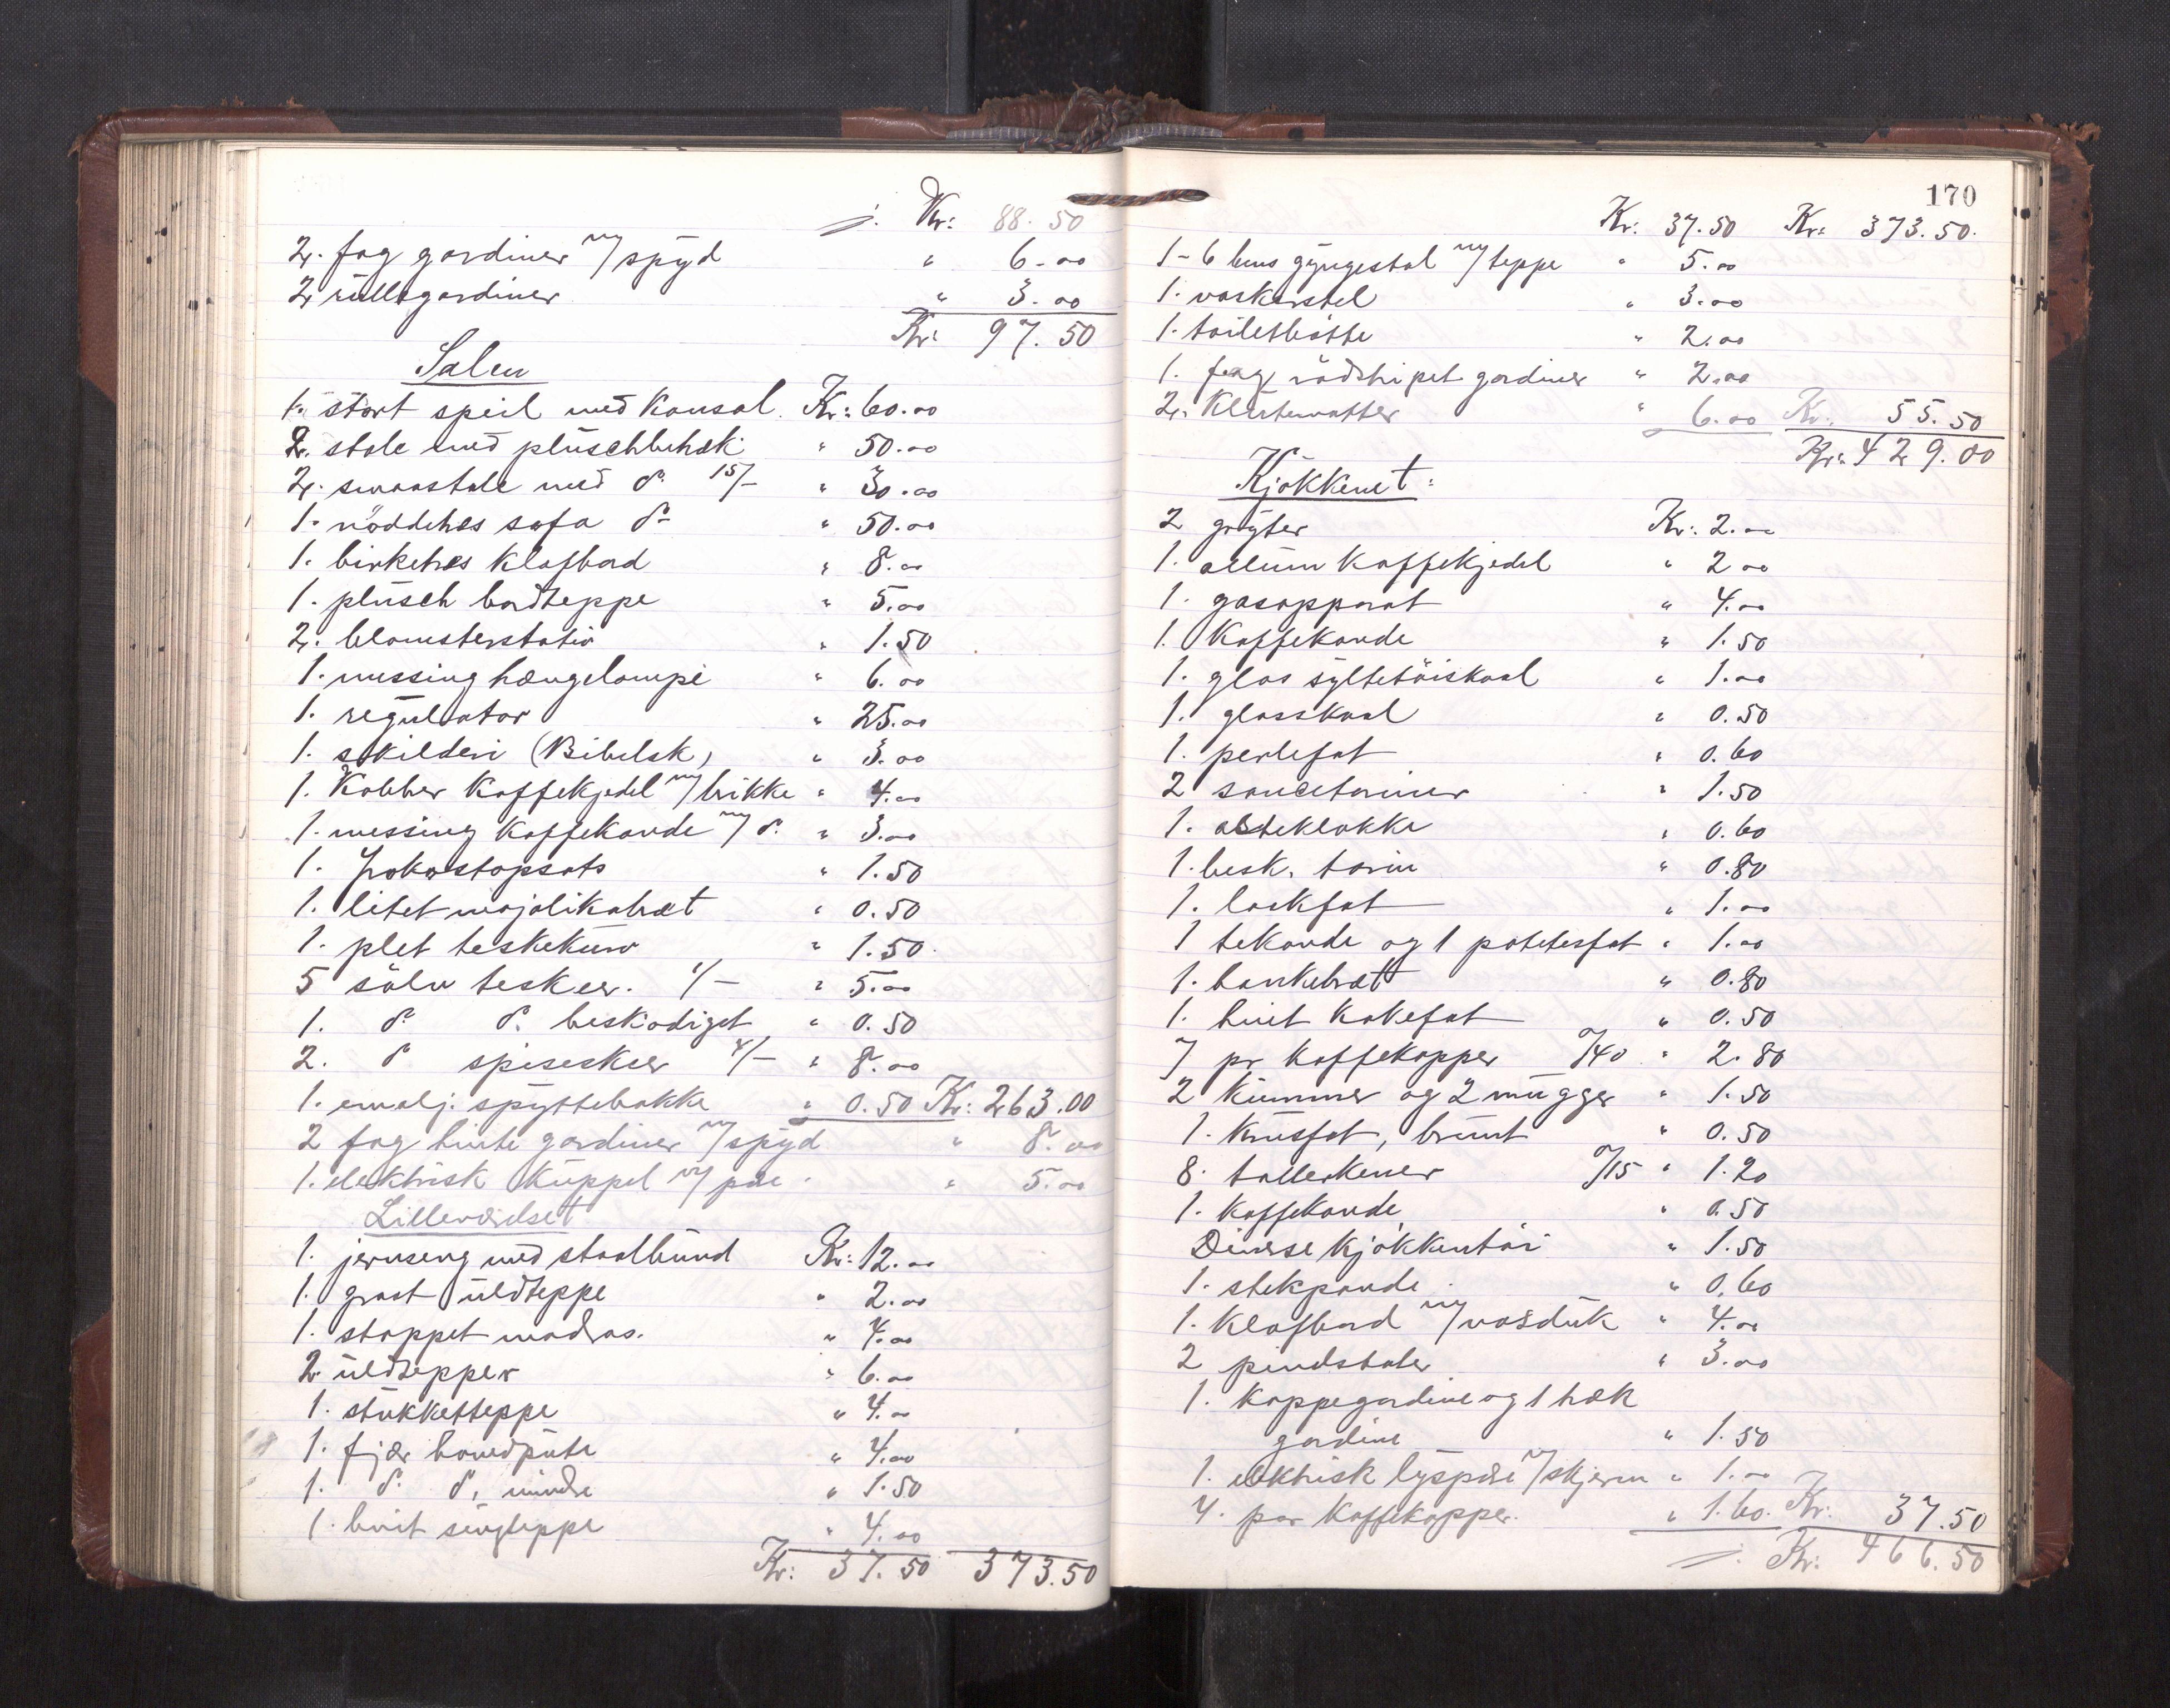 Kr: 88.50
2. fag gardiner m/spyd " 6.00
2 rullegardiner " 3.00
Kr: 97.50
Salen
1. stort speil med konsol. Kr: 60.00
2. stole med plüschbetræk " 50.00
2. smaastole med do. 15/- " 30.00
1. nöddetræs sofa do " 50.00
1. birketræs klafbord " 8.00
1. plüsch bordteppe " 5.00
2. blomsterstativ " 1.50
1. messing hængelampe " 6.00
1. regulator " 25.00
1. skilderi (Bibelsk) " 3.00
1. Kobber Kaffekjedel m/brikke " 4.00
1. messing Kaffekande m/do. " 3.00
1. frokostopsats " 1.50
1. litet majolikabræt " 0.50
1. plet teskekurv " 1.50
5 sölv teskeer. 1/- " 5.00
1. do. do. beskadiget " 0.50
2. do spiseskeer 4/- " 8.00
1. emalj. spyttebakke " 0.50 Kr: 263.00
2 fag hvite gardiner m/spyd " 8.00
1. elektrisk kuppel m/pære " 5.00
Lilleværelset
1. jernseng med staalbund Kr: 12.00
1. graat uldteppe " 2.00
1. stoppet madras. " 4.00
2 uldtepper " 6.00
1. stukketteppe " 4.00
1. fjær hovedpute " 4.00
1. do. do, mindre " 1.50
1. hvit sengteppe " 4.00
Kr: 37.50 373.50
170
Kr: 37.50 Kr: 373.50.
1 - 6 bens gyngestol m/teppe " 5.00
1. vaskerstel " 3.00
1. toiletbötte " 2.00
1. fag rödstripet gardiner " 2.00
2. Klutematter " 6.00 Kr. 55.50
Kr: 429.00
Kjökkenet:
2 gryter Kr: 2.00
1. allum Kaffekjedel " 2.00
1. gasapparat " 4.00
1. Kaffekande " 1.50
1. glas syltetöiskaal " 1.00
1. glasskaal " 0.50
1. perlefat " 0.60
2 sauceteriner " 1.50
1. osteklokke " 0.60
1. besk. terin " 0.80
1. laskfat " 1.00
1 tekande og 1 potetesfat " 1.00
1. bankebræt " 0.80
1. hvit kakefat " 0.50
7 pr kaffekopper 0/40 " 2.80
2 Kummer og 2 mugger " 1.50
1. Krusfat, brunt " 0.50
8. tallerkener 0/15 " 1.20
1. Kaffekande " 0.50
Diverse kjökkentöi " 1.50
1. stekpande " 0.60
1. Klafbord m/voksduk " 4.00
2 pindstoler " 3.00
1. Kappegardine og 1 hæk
gardine " 1.50
1. elektrisk lyspære m/skjerm " 1.00
4. par Kaffekopper. " 1.60. Kr: 37.50
Kr: 466.50